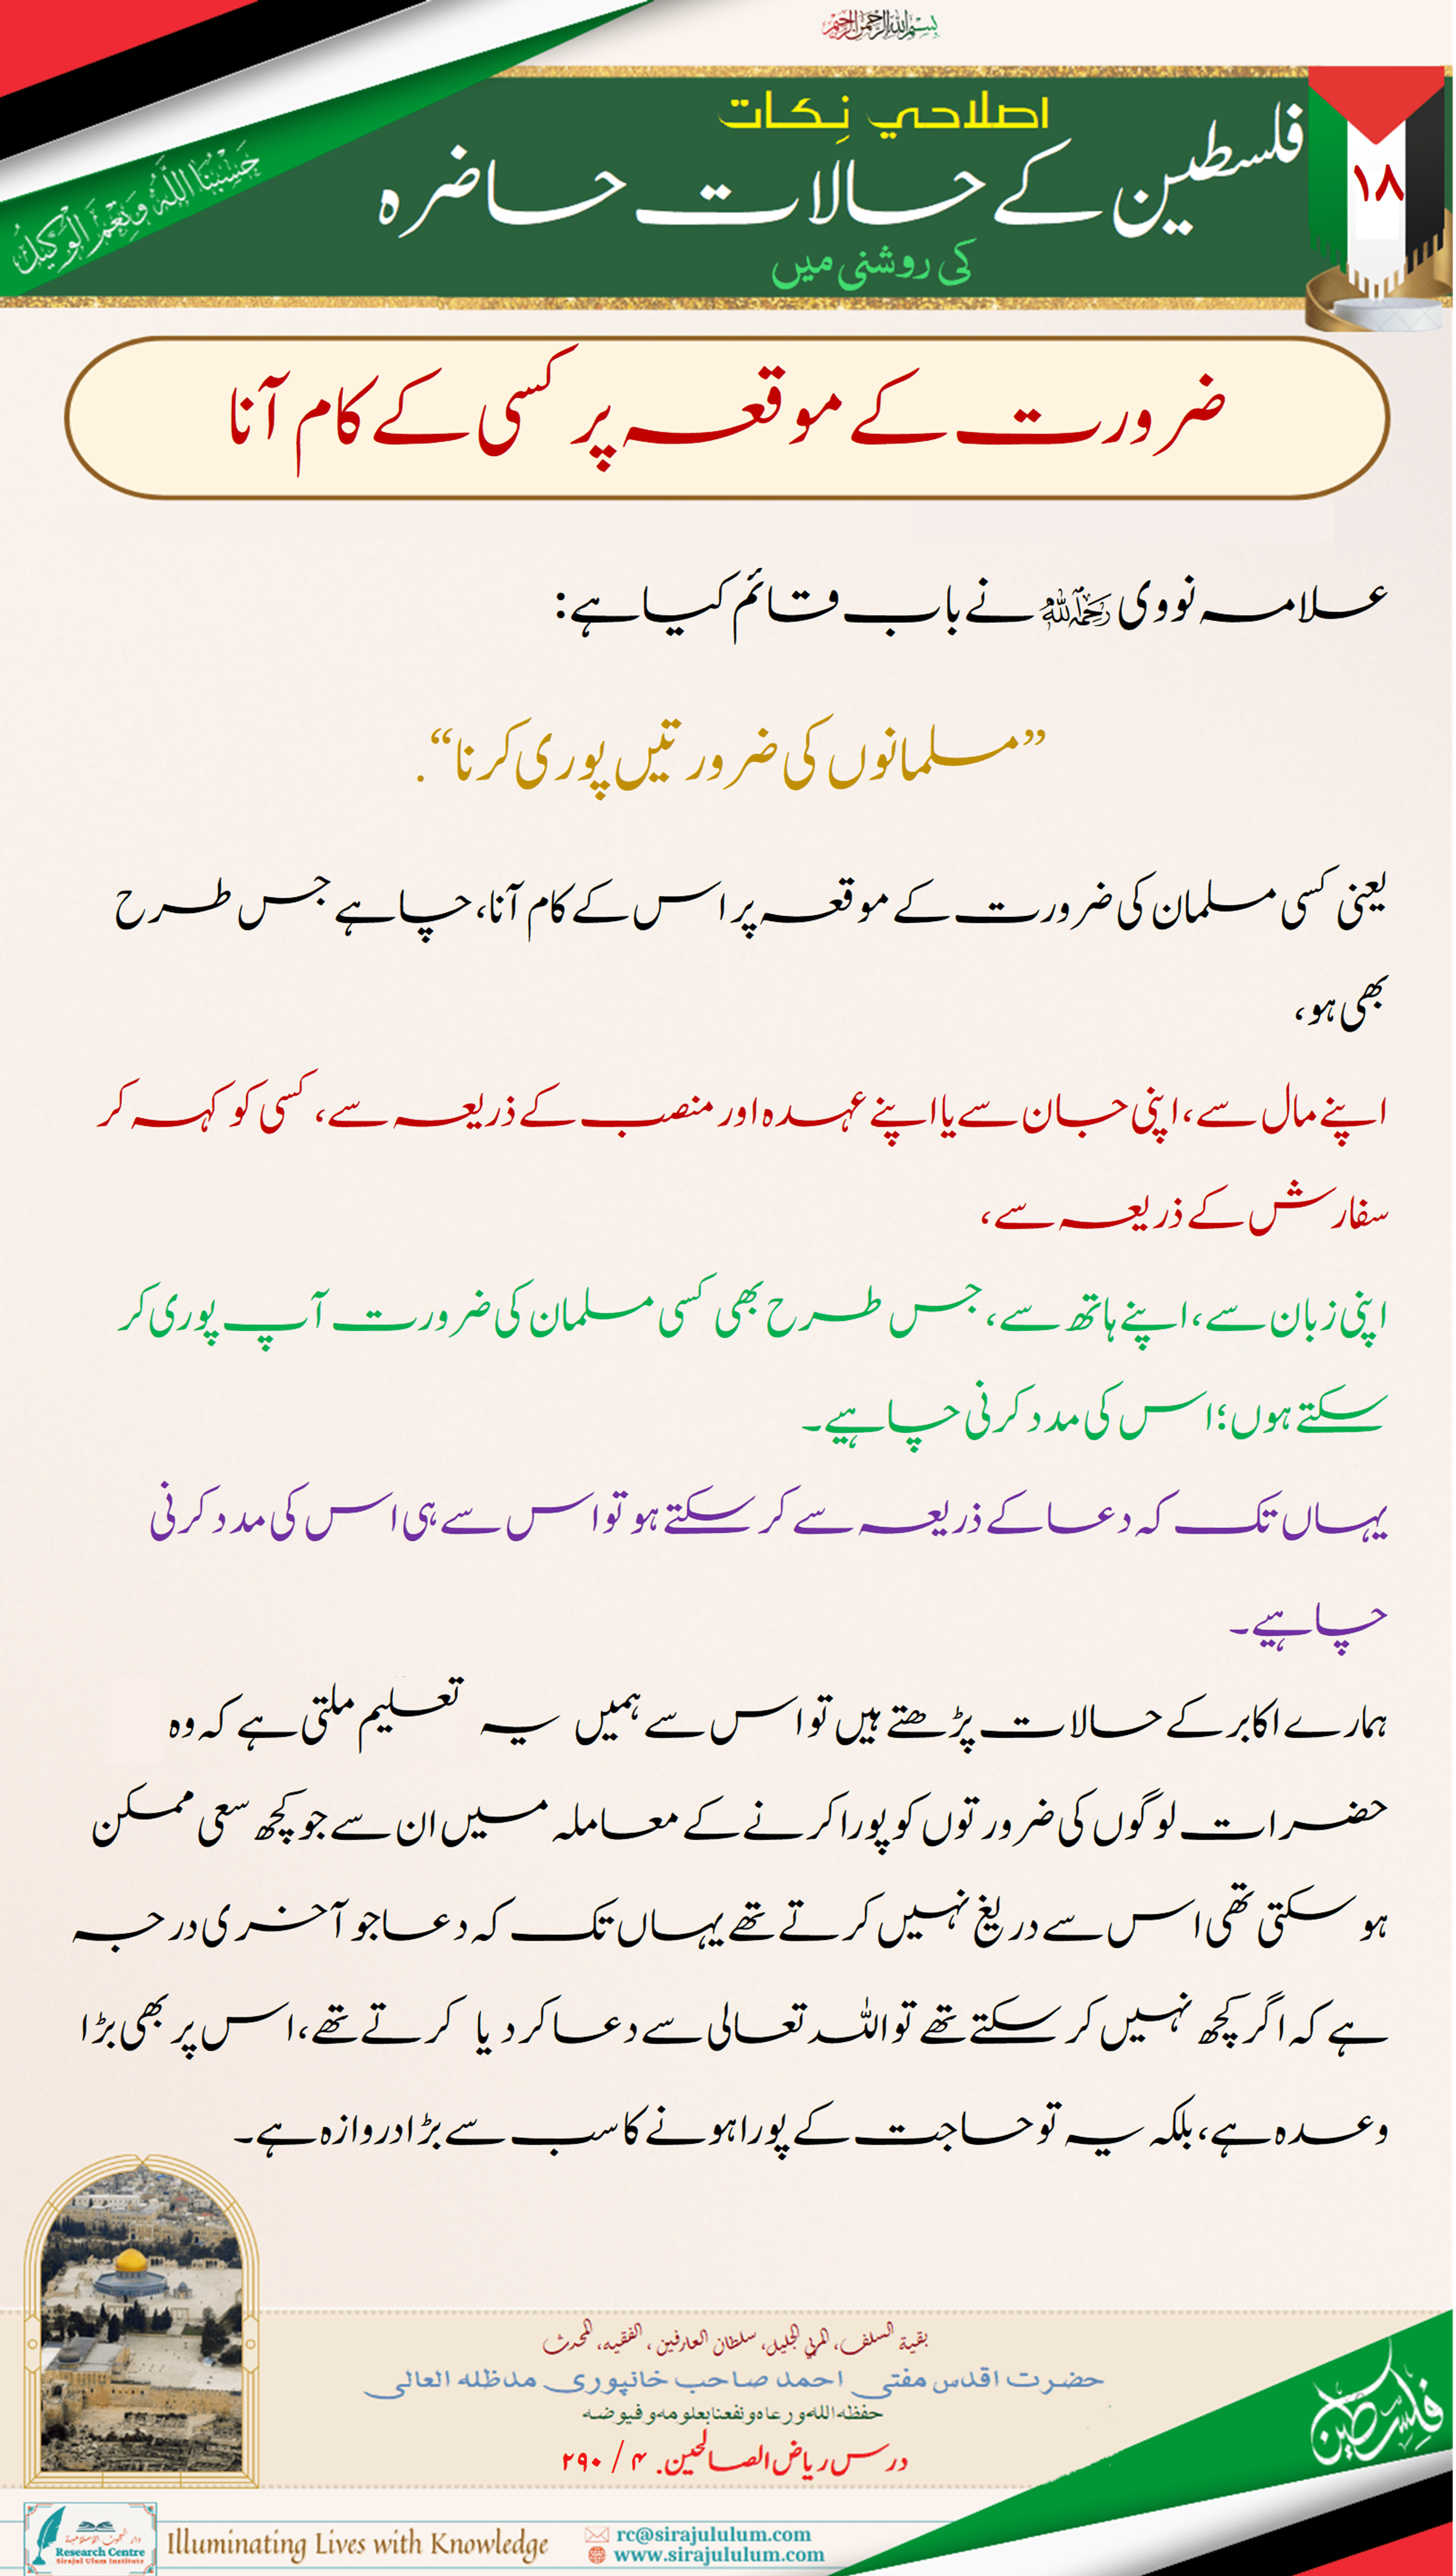 بسم اللہ الرحمن الرحیم
حَسْبُنَا اللَّهُ وَنِعْمَ الْوَكِيلُ
۱۸
اصلاحي نِكات
فلسطین کے حالات حاضرہ
کی روشنی میں
ضرورت کے موقعہ پر کسی کے کام آنا
علامہ نووی رحمہ اللہ نے باب قائم کیا ہے:
”مسلمانوں کی ضرورتیں پوری کرنا“.
یعنی کسی مسلمان کی ضرورت کے موقعہ پر اس کے کام آنا، چاہے جس طرح
بھی ہو،
اپنے مال سے، اپنی جان سے یا اپنے عہدہ اور منصب کے ذریعہ سے، کسی کو کہہ کر
سفارش کے ذریعہ سے،
اپنی زبان سے، اپنے ہاتھ سے، جس طرح بھی کسی مسلمان کی ضرورت آپ پوری کر
سکتے ہوں؛ اس کی مدد کرنی چاہیے۔
یہاں تک کہ دعا کے ذریعہ سے کر سکتے ہو تو اس سے ہی اس کی مدد کرنی
چاہیے۔
ہمارے اکابر کے حالات پڑھتے ہیں تو اس سے ہمیں یہ تعلیم ملتی ہے کہ وہ
حضرات لوگوں کی ضرورتوں کو پورا کرنے کے معاملہ میں ان سے جو کچھ سعی ممکن
ہو سکتی تھی اس سے دریغ نہیں کرتے تھے یہاں تک کہ دعا جو آخری درجہ
ہے کہ اگر کچھ نہیں کر سکتے تھے تو اللہ تعالی سے دعا کر دیا کرتے تھے، اس پر بھی بڑا
وعدہ ہے، بلکہ یہ تو حاجت کے پورا ہونے کا سب سے بڑا دروازہ ہے۔
بقية السلف، المربي الجليل، سلطان العارفين، الفقيه، المحدث
حضرت اقدس مفتی احمد صاحب خانپوری مدظله العالی
حفظه الله ورعاه ونفعنا بعلومه وفيوضه
درس ریاض الصالحین. ۴ / ۲۹۰
فلسطين
دار البحوث الإسلامية
Research Centre
Sirajul Ulum Institute
Illuminating Lives with Knowledge
rc@sirajululum.com
www.sirajululum.com